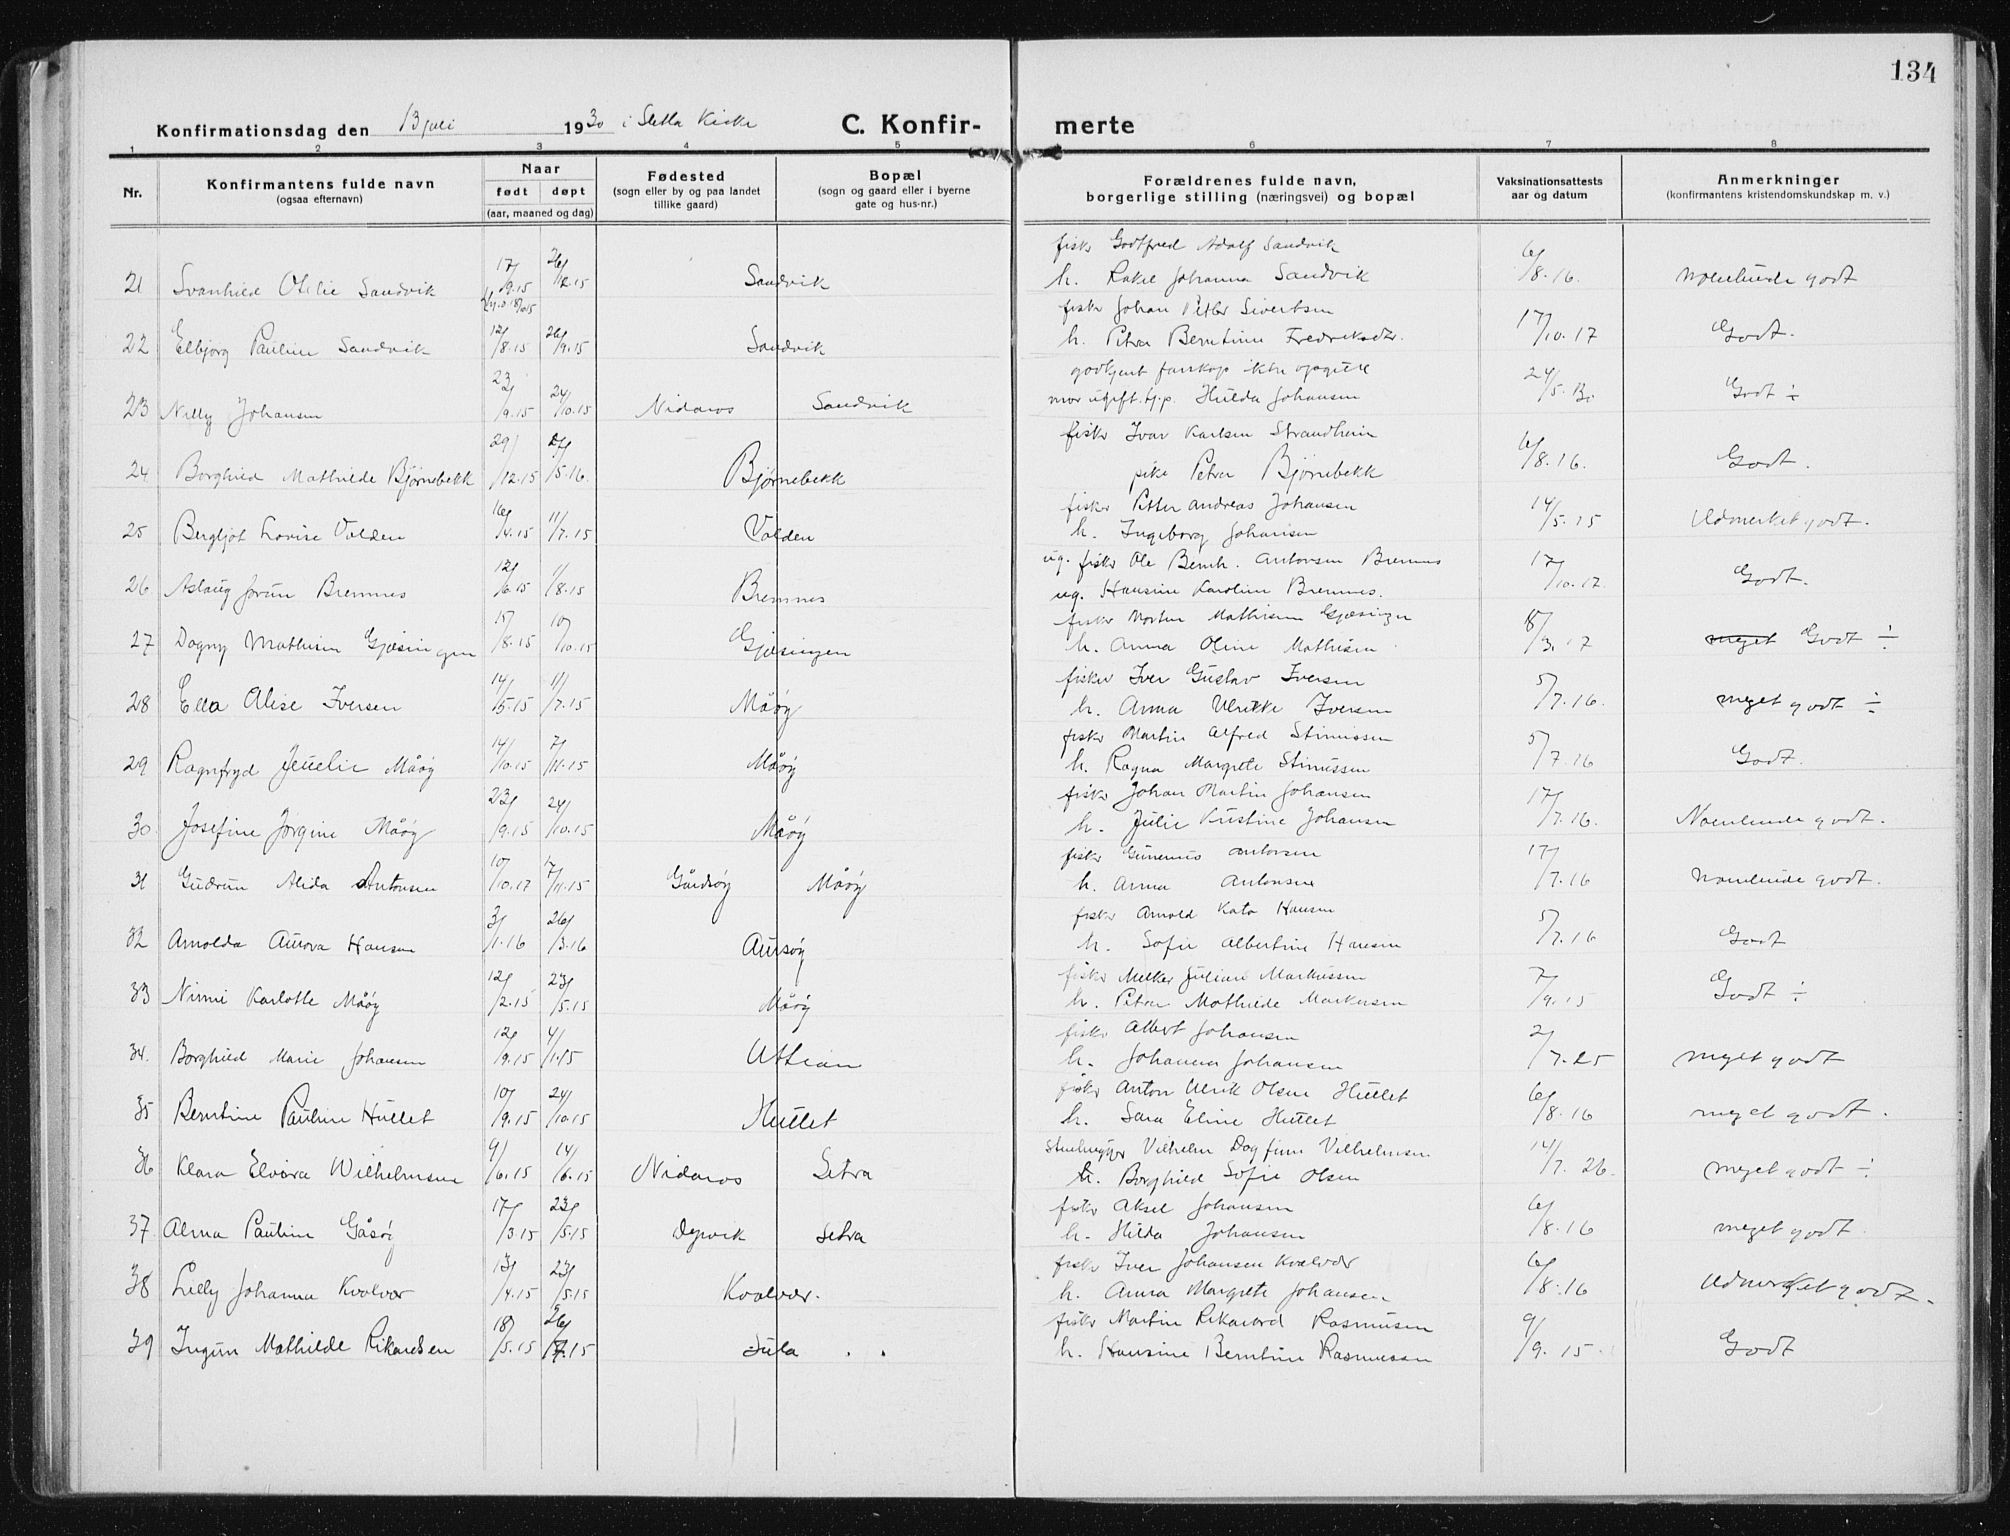 134
Konfirmationsdag den 13 juli 1930 i Sletta Kirke
C. Konfir- merte
1 2 3 4 5 6 7 8
Nr.
Konfirmantens fulde navn
(ogsaa efternavn)
Naar
født døpt
(aar, maaned og dag)
Fødested
(sogn eller by og paa landet
tillike gaard)
Bopæl
(sogn og gaard eller i byerne
gate og hus-nr.)
Forældrenes fulde navn,
borgerlige stilling (næringsvei) og bopæl
Vaksinationsattests
aar og datum
Anmerkninger
(konfirmantens kristendomskundskap m. v.)
fisker Godtfred Adolf Sandvik
21 Svanhild Otilie Sandvik 17/9.15 26/12.15 Sandvik h. Rakel Johanna Sandvik 6/8.16. noenlunde godt
fisker Johan Petter Sivertsen
22 Elbjørg Pauline Sandvik 12/8.15 26/9.15 Sandvik h. Petra Berntine Fredriksdtr. 17/10.17 Godt.
godkjent farskap ikke opgitt
23 Nelly Johansen 23/9.15 24/10.15 Nidaros Sandvik mor ugift tj.p. Hulda Johansen 24/5.30 Godt ÷
fisker Ivar Karlsen Strandheim
24 Borghild Mathilde Bjørnebekk 29/12.15 /5.16. Bjørnebekk pike Petra Bjørnebekk 6/8.16. Godt.
fisker Petter Andreas Johansen
25 Bergljot Lovise Valden 16/4.15 11/7.15 Valden h. Ingeborg Johansen 14/5.15 Udmerket godt.
ug. fisker Ole Bernh. Antonsen Bremnes
26 Aslaug Jorun Bremnes 12/6.15 1/8.15 Bremnes ug. Hansine Karoline Bremnes. 17/10.17. Godt.
fisker Morten Mathisen Gjæsingen
27 Dagny Mathisen Gjæsingen 15/8.15 10/10.15 Gjæsingen h. Anna Oline Mathisen 8/3.17 meget Godt ÷
fisker Iver Gustav Iversen
28 Ella Alise Iversen 14/5.15 11/7.15 Måøy h. Anna Ulrikke Iversen 5/7.16. meget godt ÷
fisker Martin Alfred Stinussen
29 Ragnfryd Jenelie Måøy 14/10.15 7/11.15 Måøy h. Ragna Margrete Stinussen 5/7.16 Godt.
fisker Johan Martin Johansen
30. Josefine Jørgine Måøy 23/9.15 24/10.15 Måøy h. Julie Kristine Johansen 17/7.16. Noenlunde godt.
fisker Antonsen
31 Gudrun Alida Antonsen 10/10.17 7/11.15 Gårdsøy Måøy h. Anna Antonsen 17/7.16 Noenlunde godt.
fisker Arnold Kato Hansen
32 Arnolda Aurora Hansen 3/1.16 26/3.16 Aursøy h. Sofie Albertine Hansen 5/7.16 Godt
fisker Melker Julian Markussen
33 Nimi Karlotte Måøy 12/2.15 23/5.15 Måøy h. Petra Mathilde Markussen 7/9.15 Godt ÷
fisker Albert Johansen
34. Borghild Marie Johansen 12/9.15 4/1.15 Uttian h. Johanna Johansen 2/7.25 meget godt
fisker Anton Ulrik Olsen Hullet
35 Berntine Pauline Hullet 10/9.15 24/10.15 Hullet h. Sara Eline Hullet 6/8.16 meget godt.
Vilhelm Dagfinn Vilhelmsen
36 Klara Elvira Wilhelmsen 9/6.15 14/6.15 Nidaros Setra h. Borghild Sofie Olsen 14/7.26. meget godt ÷
fisker Aksel Johansen
37 Alma Pauline Gåsøy 17/3.15 23/5.15 Dyrvik Setra h. Hilda Johansen 6/8.16 meget godt.
fisker Iver Johansen Kvalvær
38 Lilly Johanna Kvalvær 13/4.15 23/5.15 Kvalvær. h. Anna Margrete Johansen 6/8.16 Udmerket godt.
fisker Martin Rikard Rasmussen
39 Ingun Mathilde Rikardsen 18/5.15 26/7.15 Sula h. Hansine Berntine Rasmussen 9/9.15 Godt